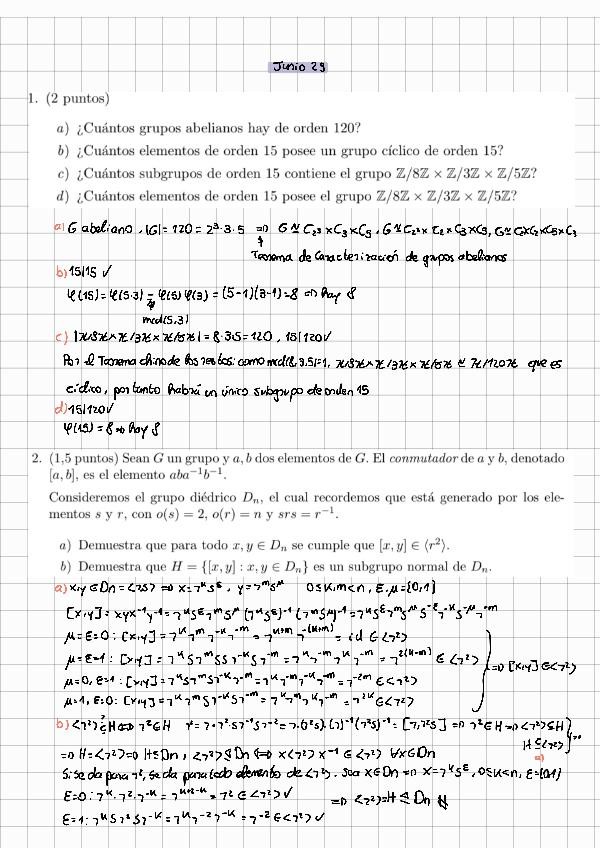 Junio 23
1. (2 puntos)
a) ¿Cuántos grupos abelianos hay de orden 120?
b) ¿Cuántos elementos de orden 15 posee un grupo cíclico de orden 15?
c) ¿Cuántos subgrupos de orden 15 contiene el grupo ℤ/8ℤ × ℤ/3ℤ × ℤ/5ℤ?
d) ¿Cuántos elementos de orden 15 posee el grupo ℤ/8ℤ × ℤ/3ℤ × ℤ/5ℤ?
a) G abeliano, |G| = 120 = 2³·3·5 ⇒ G ≃ C₂³ × C₃ × C₅, G ≃ C₂² × C₂ × C₃ × C₅, G ≃ C₂×C₂×C₂×C₅×C₃
Teorema de Caracterización de grupos abelianos
b) 15|15 ✓
φ(15) = φ(5·3) = φ(5) φ(3) = (5-1)(3-1) = 8 ⇒ Hay 8
mcd(5,3)
c) |ℤ/8ℤ × ℤ/3ℤ × ℤ/5ℤ| = 8·3·5 = 120, 15|120 ✓
Por el Teorema chino de los restos: como mcd(8,3,5)=1, ℤ/8ℤ × ℤ/3ℤ × ℤ/5ℤ ≃ ℤ/120ℤ que es
cíclico, por tanto habrá un único subgrupo de orden 15
d) 15|120 ✓
φ(15) = 8 ⇒ Hay 8
2. (1,5 puntos) Sean G un grupo y a, b dos elementos de G. El conmutador de a y b, denotado
[a, b], es el elemento aba⁻¹b⁻¹.
Consideremos el grupo diédrico Dₙ, el cual recordemos que está generado por los ele-
mentos s y r, con o(s) = 2, o(r) = n y srs = r⁻¹.
a) Demuestra que para todo x, y ∈ Dₙ se cumple que [x, y] ∈ ⟨r²⟩.
b) Demuestra que H = {[x, y] : x, y ∈ Dₙ} es un subgrupo normal de Dₙ.
a) x,y ∈ Dn = <r,s> ⇒ x = rᵏsᵋ, y = rᵐsᵘ 0≤k,m<n, ε,μ = {0,1}
[x,y] = xyx⁻¹y⁻¹ = rᵏsᵋrᵐsᵘ (rᵏsᵋ)⁻¹ (rᵐsᵘ)⁻¹ = rᵏsᵋrᵐsᵘs⁻ᵋr⁻ᵏs⁻ᵘr⁻ᵐ
μ=ε=0: [x,y] = rᵏrᵐr⁻ᵏr⁻ᵐ = rᵏ⁺ᵐr⁻⁽ᵏ⁺ᵐ⁾ = id ∈ <r²>
μ=ε=1: [x,y] = rᵏsrᵐssr⁻ᵏsr⁻ᵐ = rᵏr⁻ᵐrᵏr⁻ᵐ = r²⁽ᵏ⁻ᵐ⁾ ∈ <r²> ⇒ [x,y] ∈ <r²>
μ=0, ε=1: [x,y] = rᵏsrᵐsr⁻ᵏr⁻ᵐ = rᵏr⁻ᵐr⁻ᵏr⁻ᵐ = r⁻²ᵐ ∈ <r²>
μ=1, ε=0: [x,y] = rᵏrᵐsr⁻ᵏsr⁻ᵐ = rᵏrᵐrᵏr⁻ᵐ = r²ᵏ ∈ <r²>
b) <r²> ⊆ H ⇔ r² ∈ H r² = r·r²sr⁻¹sr⁻² = r·(r²s)·(r)⁻¹(r²s)⁻¹ = [r,r²s] ⇒ r² ∈ H ⇒ <r²> ⊆ H
H ⊆ <r²>
a)
⇒ H = <r²> ⇒ H ≤ Dn, <r²> ⊴ Dn ⇔ x<r²>x⁻¹ ∈ <r²> ∀x∈Dn
Si se da para r², se da para todo elemento de <r²>. Sea x∈Dn ⇒ x = rᵏsᵋ, 0≤k<n, ε={0,1}
ε=0: rᵏ·r²·r⁻ᵏ = rᵏ⁺²⁻ᵏ = r² ∈ <r²> ✓
⇒ <r²> = H ⊴ Dn
ε=1: rᵏsr²sr⁻ᵏ = rᵏr⁻²r⁻ᵏ = r⁻² ∈ <r²> ✓